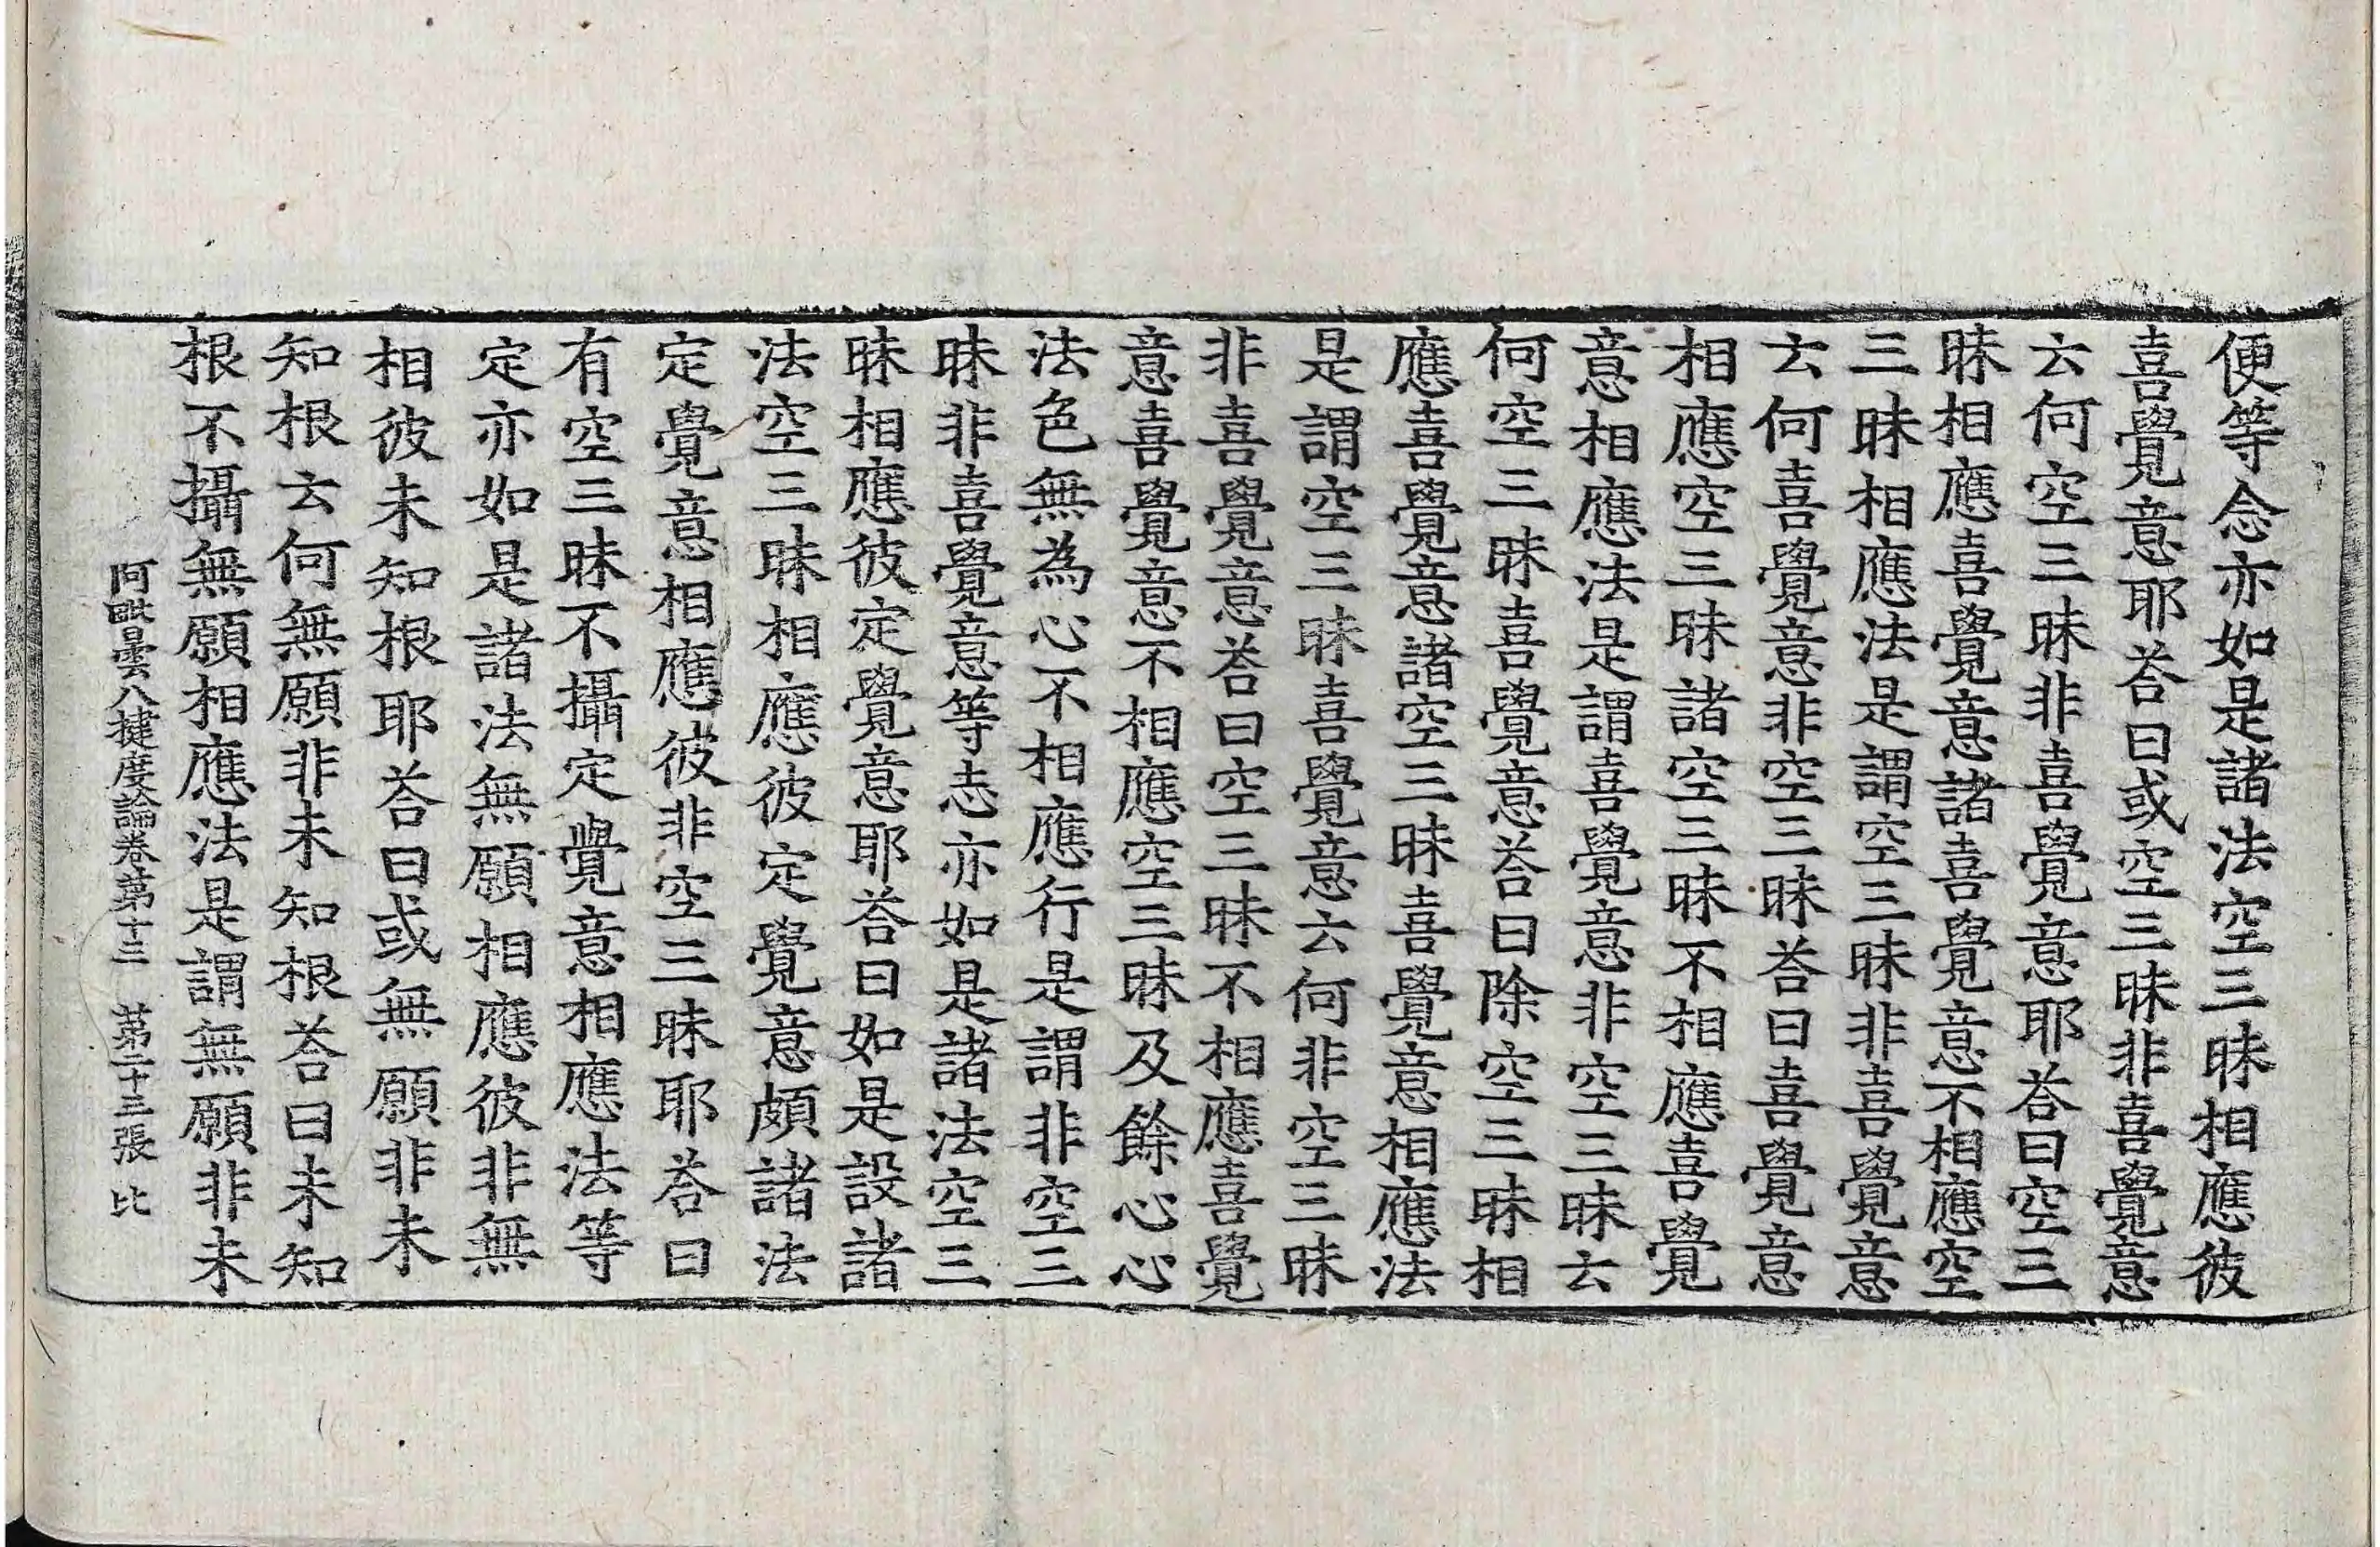 便等念亦如是諸法空三昧相應彼
喜覺意耶荅曰或空三昧非喜覺意
云何空三昧非喜覺意耶荅曰空三
昧相應喜覺意諸喜覺意不相應空
三昧相應法是謂空三昧非喜覺意
云何喜覺意非空三昧荅曰喜覺意
相應空三昧諸空三昧不相應喜覺
意相應法是謂喜覺意非空三昧云
何空三昧喜覺意荅曰除空三昧相
應喜覺意諸空三昧喜覺意相應法
是謂空三昧喜覺意云何非空三昧
非喜覺意荅曰空三昧不相應喜覺
意喜覺意不相應空三昧及餘心心
法色無為心不相應行是謂非空三
昧非喜覺意等志亦如是諸法空三
昧相應彼定覺意耶荅曰如是設諸
法空三昧相應彼定覺意頗諸法
定覺意相應彼非空三昧耶荅曰
有空三昧不攝定覺意相應法等
定亦如是諸法無願相應彼非無
相彼未知根耶荅曰或無願非未
知根云何無願非未知根荅曰未知
根不攝無願相應法是謂無願非未
阿毗曇八揵度論卷第十三　第二十三張　比